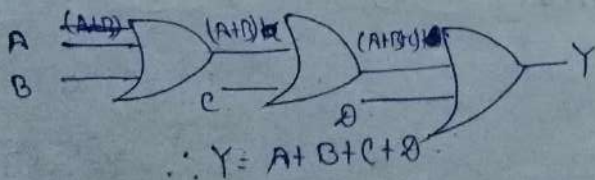 (A+B) (A+B) (A+B+C)
A
Y
B
C
D
∴ Y = A+B+C+D